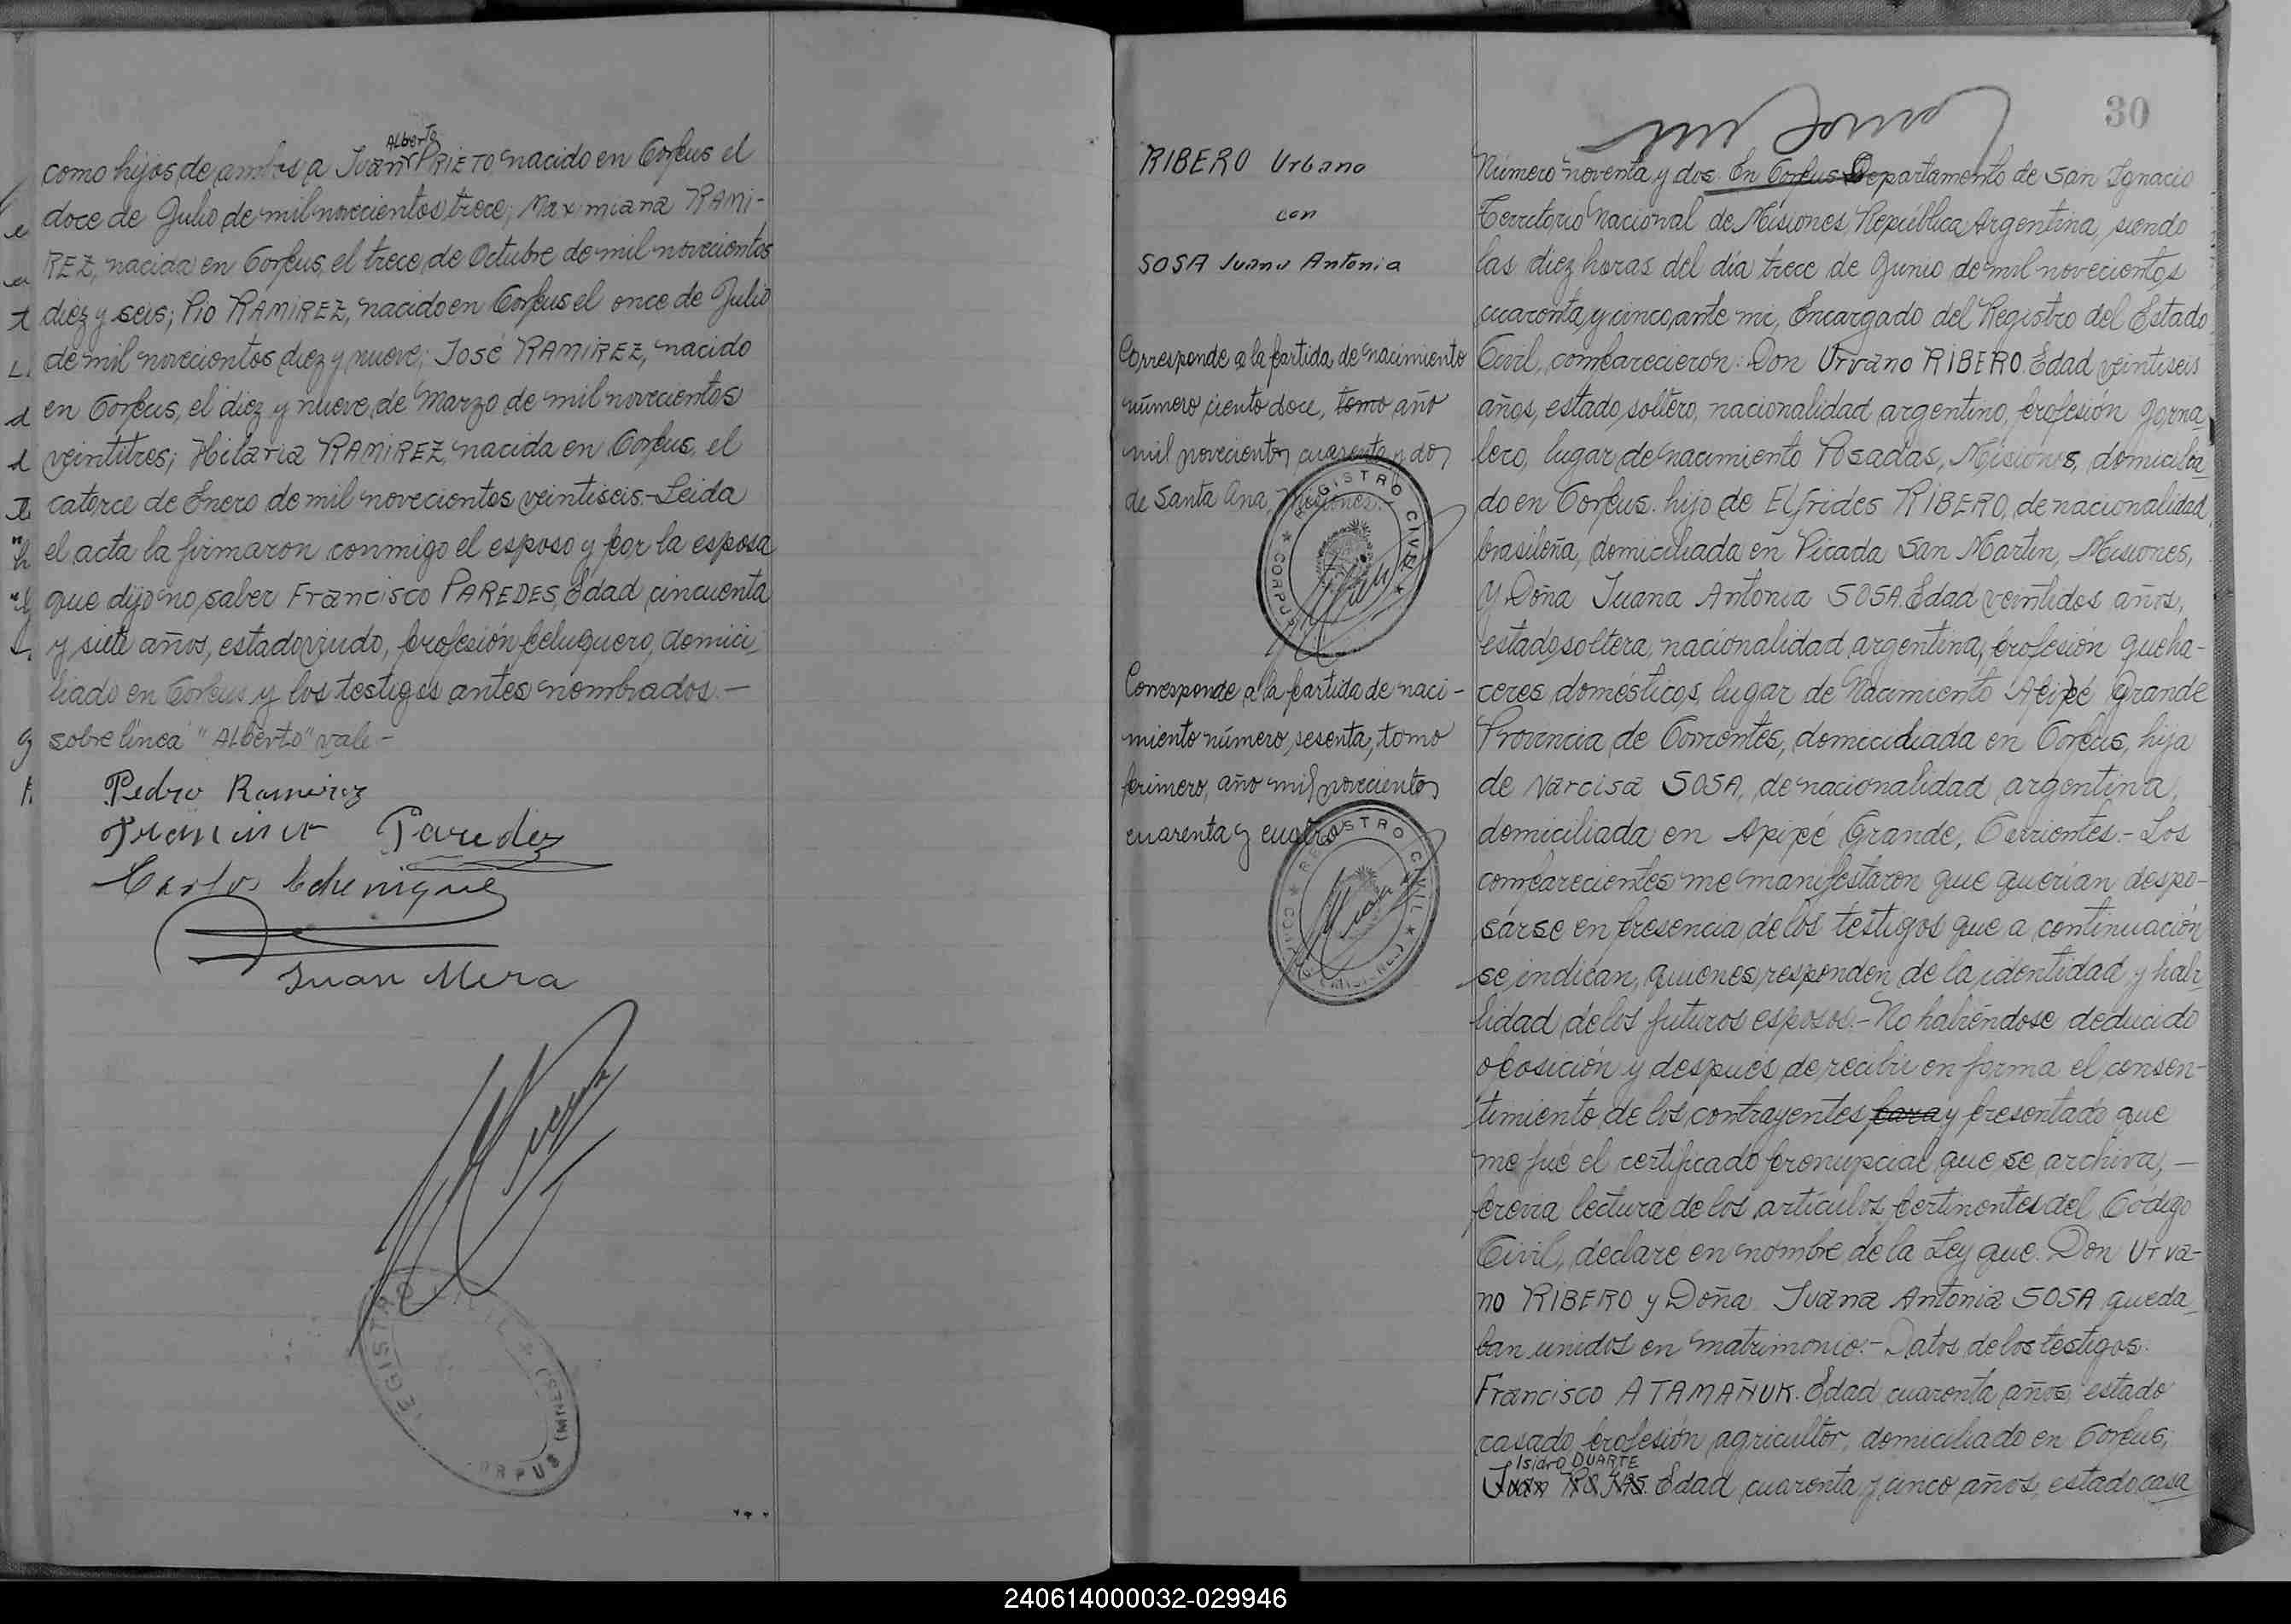 como hijos de ambos a Juan Alberto PRIETO, nacido en Corpus el
doce de Julio de mil novecientos trece; Maxmiana RAMI-
REZ, nacida en Corpus, el trece de Octubre de mil novecientos
diez y seis; Pio RAMIREZ, nacido en Corpus el once de Julio
de mil novecientos diez y nueve; José RAMIREZ, nacido
en Corpus, el diez y nueve de Marzo de mil novecientos
veintitres; Hilaria RAMIREZ, nacida en Corpus, el
catorce de Enero de mil novecientos veintiseis.- Leida
el acta la firmaron conmigo el esposo y por la esposa
que dijo no saber Francisco PAREDES, Edad cincuenta
y siete años, estado viudo, profesión peluquero, domici-
liado en Corpus y los testigos antes nombrados.-
sobre línea "Alberto" vale-
Pedro Ramirez
Francisco Paredez
Carlos Echenique
Juan Mera
REGISTRO CIVIL
CORPUS (MNES)
30
RIBERO Urbano
con
SOSA Juana Antonia
Corresponde a la partida de nacimiento
número ciento doce, tomo año
mil novecientos cuarenta y dos
de Santa Ana, Misiones.-
REGISTRO CIVIL
CORPUS
Corresponde a la partida de naci-
miento número sesenta, tomo
primero, año mil novecientos
cuarenta y cuatro
REGISTRO CIVIL
CORPUS (MISIONES)
Número noventa y dos En Corpus Departamento de San Ignacio
Territorio Nacional de Misiones, República Argentina, siendo
las diez horas del día trece de Junio de mil novecientos
cuarenta y cinco, ante mi, Encargado del Registro del Estado
Civil, comparecieron: Don Urvano RIBERO. Edad veintiseis
años, estado soltero, nacionalidad argentino, profesión Jorna
lero, lugar de nacimiento Posadas, Misiones, domicilia
do en Corpus. hijo de Elfrides RIBERO, de nacionalidad
brasileña, domiciliada en Picada San Martin, Misiones,
Y Doña Juana Antonia SOSA. Edad veintidos años,
estado soltera, nacionalidad argentina, profesión queha-
ceres domésticos, lugar de Nacimiento Apipé Grande
Provincia de Corrientes, domiciliada en Corpus, hija
de Narcisa SOSA, de nacionalidad argentina,
domiciliada en Apipé Grande, Corrientes.- Los
comparecientes me manifestaron que querían despo-
sarse en presencia de los testigos que a continuación
se indican, quienes responden de la identidad y habi
lidad de los futuros esposos.- No habiéndose deducido
oposición y después de recibir en forma el consen-
timiento de los contrayentes para y presentado que
me fué el certificado prenupcial que se archiva, -
previa lectura de los artículos pertinentes del Código
Civil, declaré en nombre de la Ley que. Don Urva-
no RIBERO y Doña Juana Antonia SOSA queda
ban unidos en matrimonio.- Datos de los testigos.
Francisco ATAMAÑUK. Edad cuarenta años, estado
casado, profesión agricultor, domiciliado en Corpus,
Isidro DUARTE
Juan ROJAS. Edad cuarenta y cinco años, estado casa
240614000032-029946